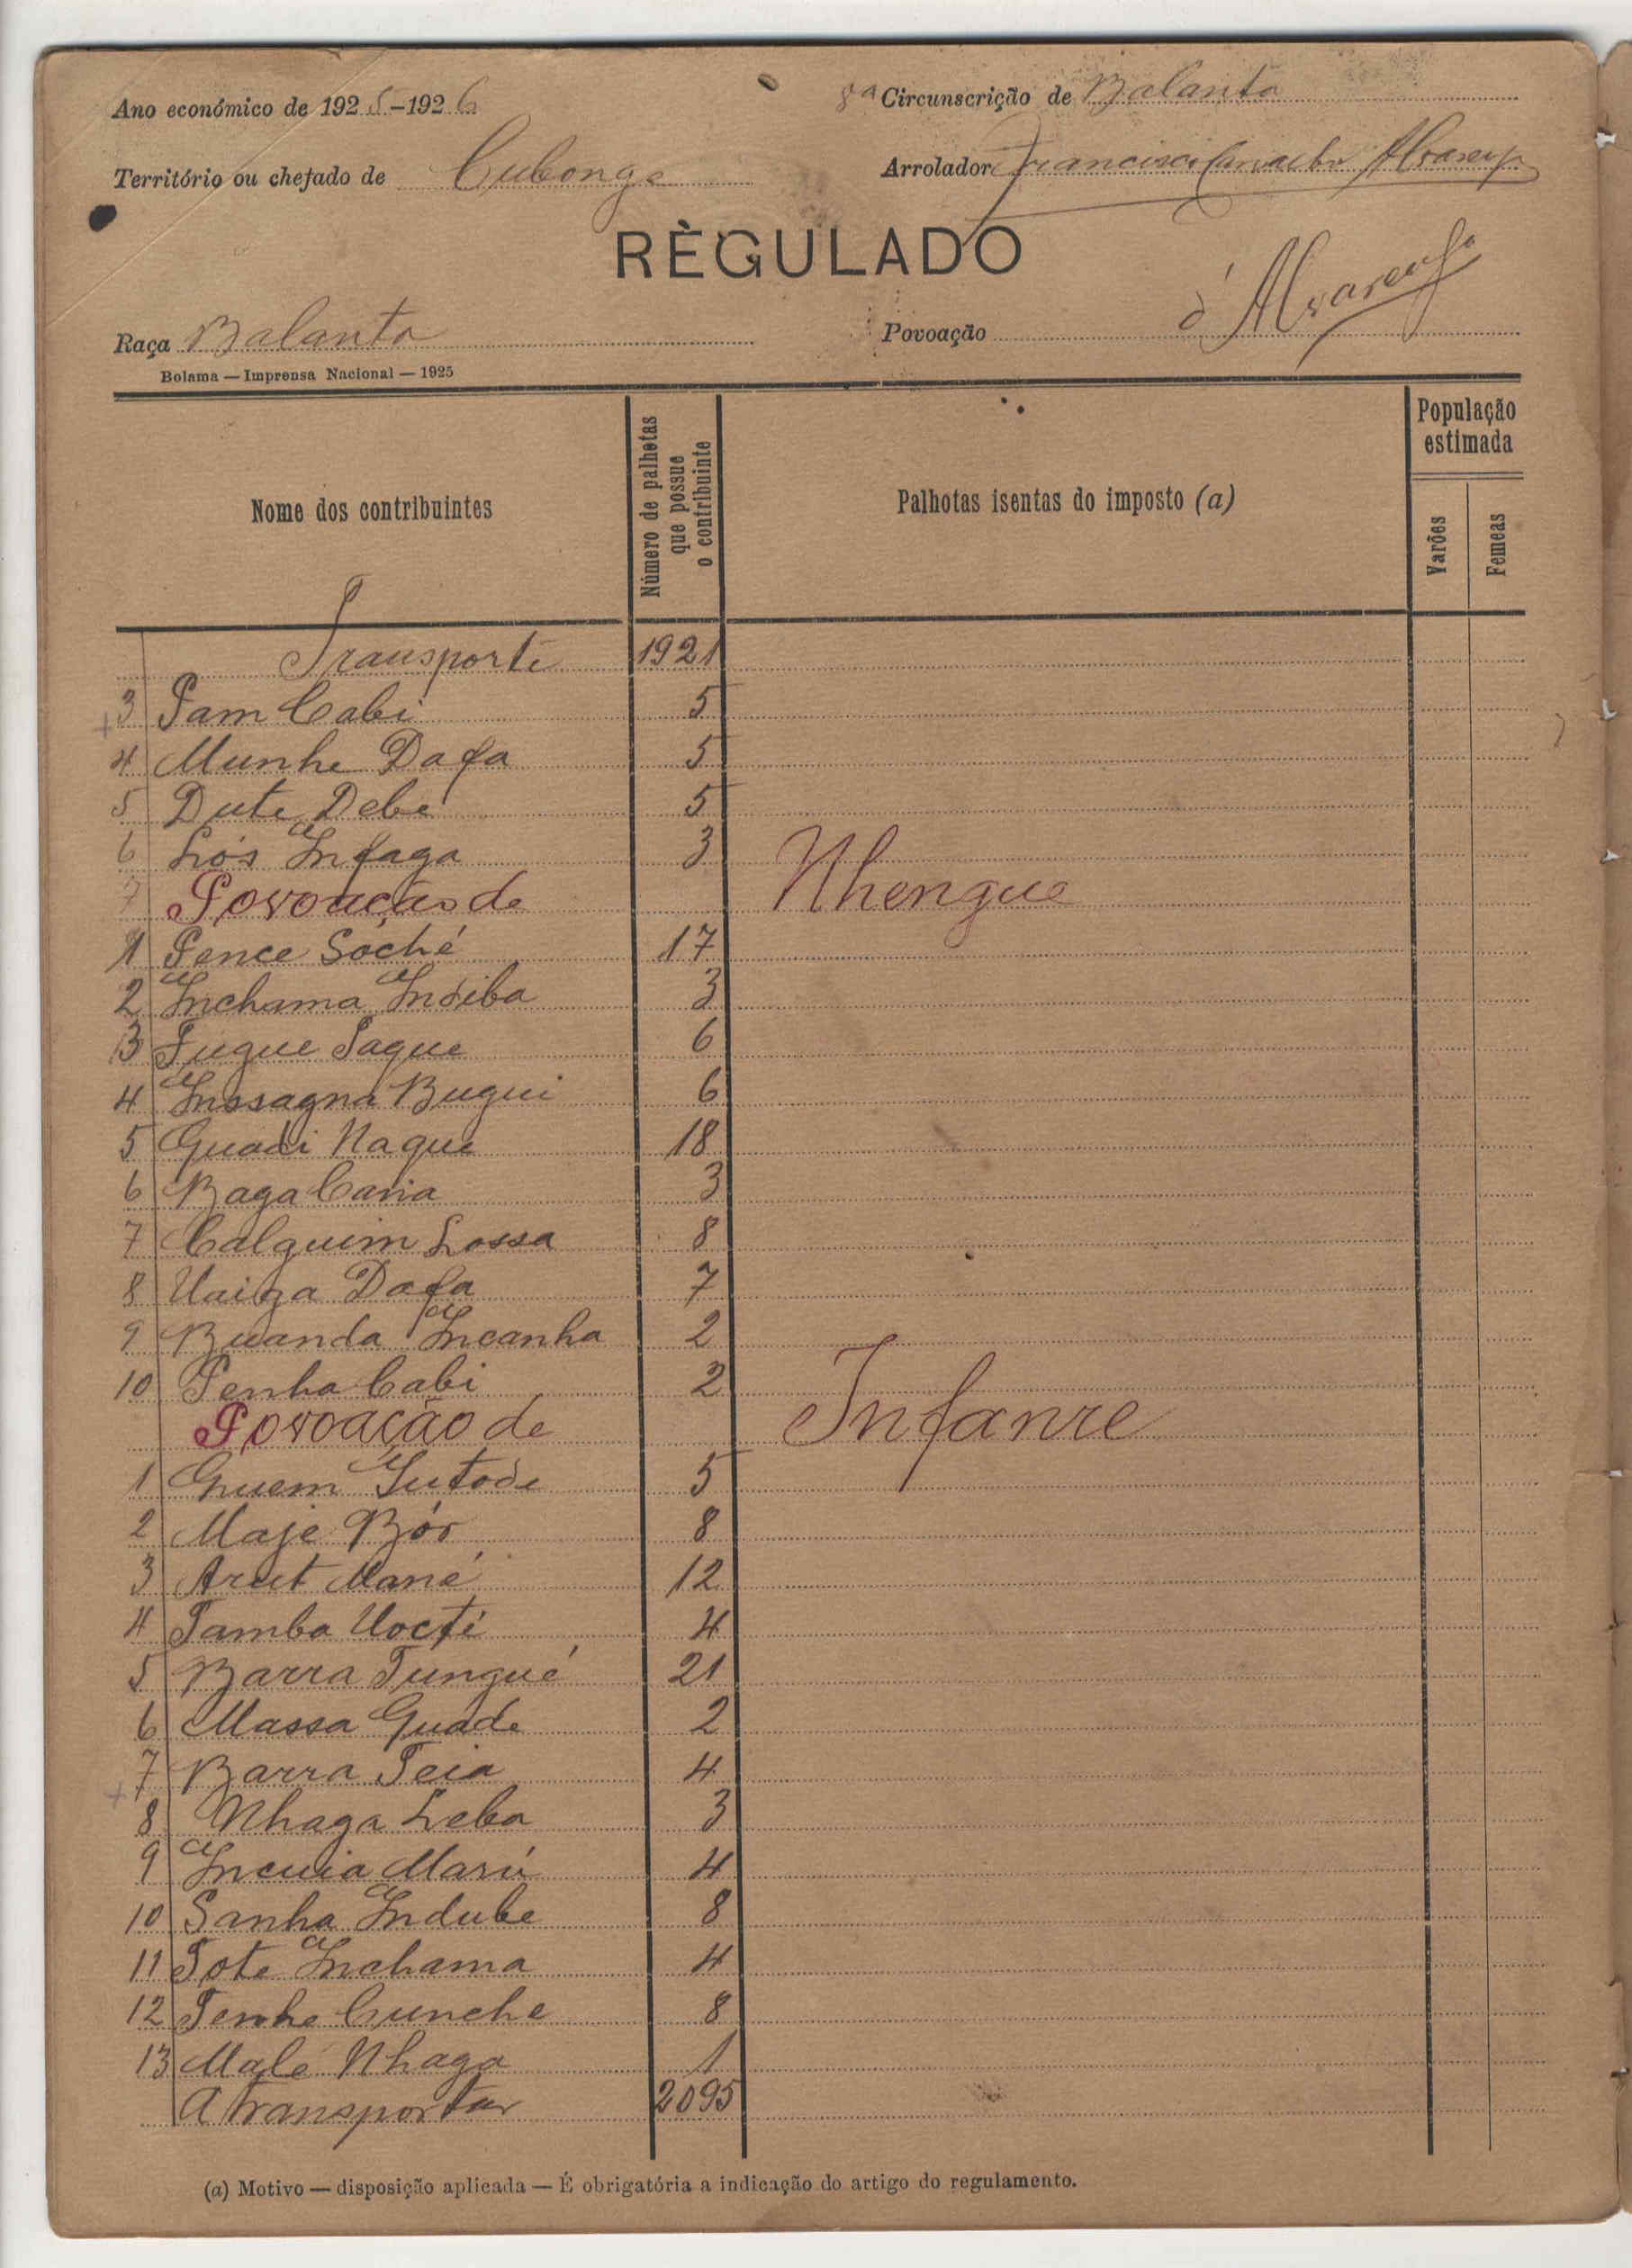 Ano económico de 1925-1926
8ª Circunscrição de Balanta
Território ou chefado de Cubonge
Arrolador Francisco Carvalho Alvarenga
RÈGULADO
d'Alvarenga
Raça Balanta
Povoação
Bolama — Imprensa Nacional — 1925
Nome dos contribuintes
Número de palhotas que possue o contribuinte
Palhotas isentas do imposto (a)
População estimada
Varões
Femeas
Transporte 1921
3 Pam Cabi 5
4 Munhe Dafa 5
5 Dute Debe 5
6 Lós Infaga 3
7 Povoação de Nhengue
1 Pence Sóché 17
2 Inchama Insiba 3
3 Fugue Saque 6
4 Inssagna Bugui 6
5 Guadi Naque 18
6 Baga Cania 3
7 Calquim Lossa 8
8 Uainga Dafa 7
9 Buanda Incanha 2
10 Penha Cabi 2
Povoação de Infanre
1 Quem Iutode 5
2 Maje Bór 8
3 Arut Mané 12
4 Tamba Uocti 4
5 Barra Tungué 21
6 Massa Guade 2
7 Barra Teia 4
8 Nhaga Leba 3
9 Incuia Marú 4
10 Sanha Indube 8
11 Tote Inchama 4
12 Tenhe Cunche 8
13 Malé Nhaga 1
A transportar 2095
(a) Motivo — disposição aplicada — É obrigatória a indicação do artigo do regulamento.